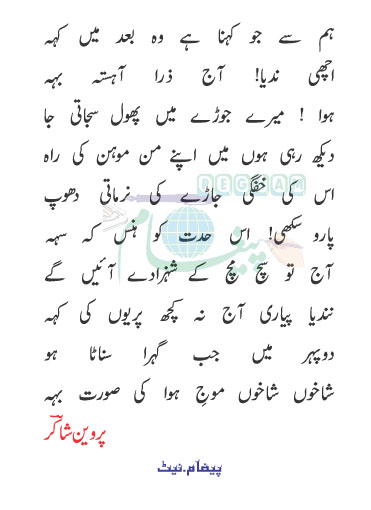 ہم سے جو کہنا ہے وہ بعد میں کہہ
اچھی ندیا! آج ذرا آہستہ بہہ
ہوا ! میرے جوڑے میں پھول سجاتی جا
دیکھ رہی ہوں میں اپنے من موہن کی راہ
اس کی خفگی جاڑے کی نرماتی دھوپ
پارو سکھی! اس حدت کو ہنس کہ سہہ
آج تو سچ مچ کے شہزادے آئیں گے
نندیا پیاری آج نہ کچھ پریوں کی کہہ
دوپہر میں جب گہرا سناٹا ہو
شاخوں شاخوں موجِ ہوا کی صورت بہہ
پروین شاکر
پیغام.نیٹ
پیغام